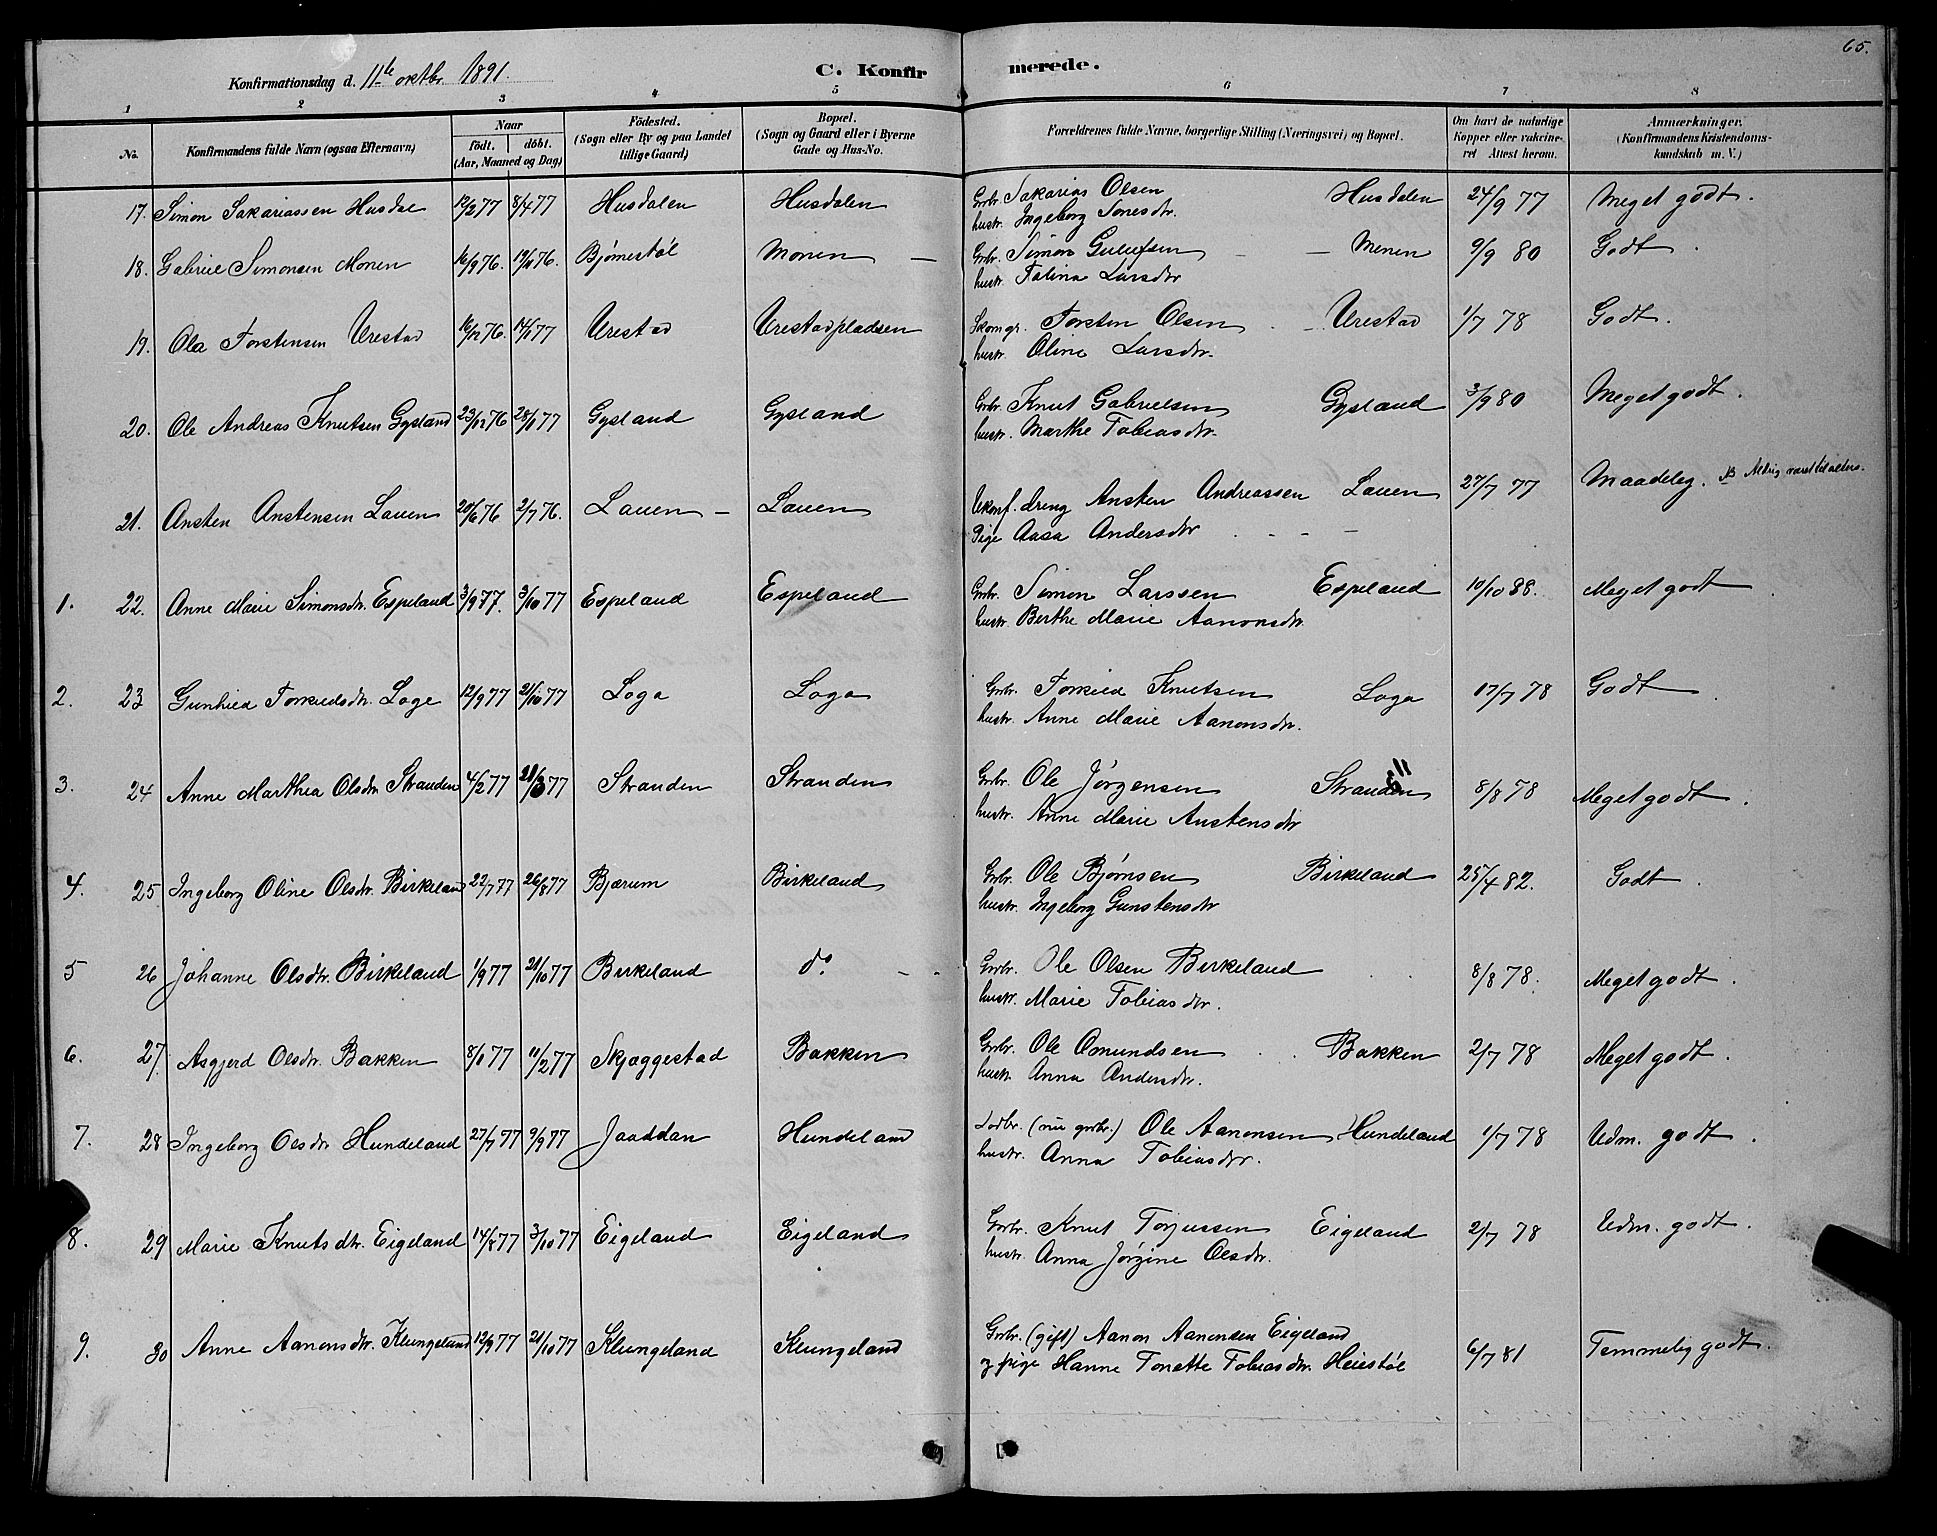 65.
Konfirmationsdag d. 11te oktbr. 1891.
C. Konfir merede.
1 2 3 4 5 6 7 8
No. Konfirmandens fulde Navn (ogsaa Efternavn) Naar födt. döbt. (Aar, Maaned og Dag) Födested. (Sogn eller By og paa Landet tillige Gaard) Bopæl. (Sogn og Gaard eller i Byerne Gade og Hus-No. Forældrenes fulde Navne, borgerlige Stilling (Næringsvei) og Bopæl. Om havt de naturlige Kopper eller vakcineret Attest herom. Anmærkninger. (Konfirmandens Kristendomskundskab m. V.)
17. Simon Sakariassen Husdal 12/2 77 8/4 77 Husdalen Husdalen Grbr. Sakarias Olsen Husdalen 24/9 77 Meget godt.
hustr. Ingeborg Tonesdtr.
18. Gabriel Simonsen Monen 16/9 76. 19/11 76. Bjørnestøl Monen Grbr. Simon Guleefsen Monen 9/9 80 Godt
hustr. Talina Larsdtr
19. Ola Torstensen Urestad 16/12 76. 14/1 77 Urestad Urestadpladsen Skomgr. Torsten Olsen Urestad 1/7 78 Godt.
hustr. Oline Larsdtr.
20. Ole Andreas Knutsen Gysland 23/12 76 28/1 77 Gysland Gysland Grbr. Knut Gabrielsen Gysland 3/9 80 Meget godt.
hustr. Marthe Tobiasdtr.
21. Ansten Anstensen Lauen 20/6 76 2/7 76. Lauen Lauen Ukonf. dreng Ansten Andreassen Lauen 27/7 77 Maadelig. NB Aldrig været til alters.
Pige Aasa Andersdtr
1. 22. Anne Marie Simonsdtr. Espeland 3/9 77. 3/10 77 Espeland Espeland Grbr. Simon Larssen Espeland 10/10 88. Meget godt
hustr. Berthe Marie Aanonsdtr.
2. 23 Gunhild Torkildsdtr. Loge 12/9 77 21/10 77 Loga Loga Grbr. Torkild Knutsen Loga 17/7 78 Godt
hustr. Anne Marie Aanonsdtr.
3. 24 Anne Marthea Olsdtr. Stranden 4/2 77 21/3 77 Stranden Stranden Grbr. Ole Jørgensen Stranden 8/8 78 Meget godt.
hustr. Anne Marie Anstensdtr
4. 25 Ingeborg Oline Olsdtr. Birkeland 22/7 77 26/8 77 Bjærum Birkeland Grbr. Ole Bjørnsen Birkeland 25/4 82. Godt.
hustr. Ingeborg Gunstensdtr
5 26 Johanne Olsdtr. Birkeland 1/9 77 21/10 77 Birkeland do Grbr. Ole Olsen Birkeland 8/8 78. Meget godt.
hustr. Marie Tobiasdtr.
6. 27. Asgjerd Olsdtr. Bakken 8/1 77 11/2 77 Skjæggestad Bakken Grbr. Ole Omundsen Bakken 2/7 78 Meget godt.
hustr. Anna Andersdtr.
7. 28 Ingeborg Olsdtr Hundeland 27/7 77 9/9 77 Jaaddan Hundeland Lodbr. (nu grbr.) Ole Aanonsen Hundeland 1/7 78 Udm. godt.
hustr. Anna Tobiasdtr.
8. 29 Marie Knutsdtr. Eigeland 14/8 77 3/10 77 Eigeland Eigeland Grbr. Knut Torjussen Eigeland 2/7 78 Udm. godt.
hustr. Anna Jørgine Olsdtr.
9. 30 Anne Aanonsdtr. Klungeland 12/9 77 21/10 77 Klungeland Klungeland Grbr. (gift) Aanon Aanonsen Eigeland 6/7 81 Temmelig godt.
og pige Hanne Tonette Tobiasdtr. Heiestøl